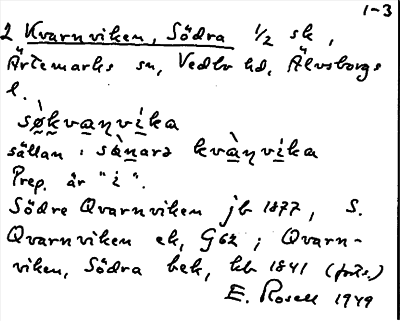 1-3
2 Kvarnviken, Södra 1/2 sk,
Ärtemarks sn, Vedbo hd, Älvsborgs
l.
sø̀kvaṇvika
sällan: sànarə kvàṇvika
Prep. är "i".
Södre Qvarnviken jb 1877, S.
Qvarnviken ek, G62; Qvarn-
viken, Södra bek, hb 1841 (forts.)
E. Rosell 1949